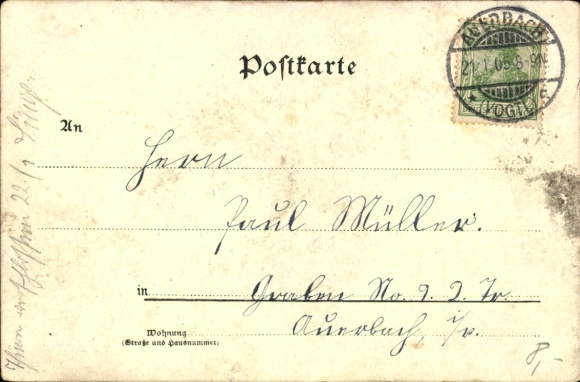 AUERBACH
21.1.05.8-9N.
(VOGTL)
Postkarte
An
Herrn
Paul Müller.
in
Graben No. 9. 2. Tr.
Auerbach, i/v.
Wohnung
(Straße und Hausnummer)
8,-
22/1